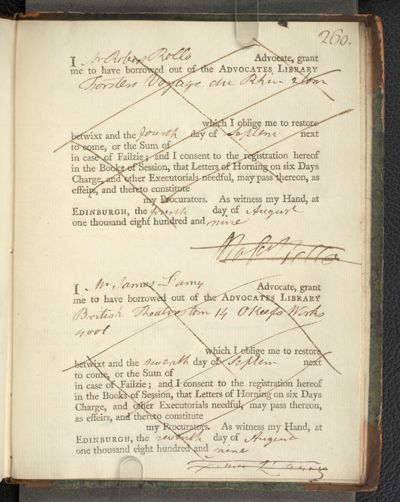 260.
I Mr Robert Rollo Advocate, grant
me to have borrowed out of the ADVOCATES LIBRARY
Forsters Voyage du Rhin 2 tom
which I oblige me to restore
betwixt and the fourth day of Septem next
to come, or the Sum of
in case of Failzie; and I consent to the registration hereof
in the Books of Session, that Letters of Horning on six Days
Charge, and other Executorials needful, may pass thereon, as
effeirs, and thereto constitute
my Procurators. As witness my Hand, at
EDINBURGH, the fourth day of August
one thousand eight hundred and nine
Robert Rollo
I Mr James Advocate, grant
me to have borrowed out of the ADVOCATES LIBRARY
British Theatre tom 14 OKeefs Works
4 vol
which I oblige me to restore
betwixt and the seventh day of Septem next
to come, or the Sum of
in case of Failzie; and I consent to the registration hereof
in the Books of Session, that Letters of Horning on six Days
Charge, and other Executorials needful, may pass thereon,
as effeirs, and thereto constitute
my Procurators. As witness my Hand, at
EDINBURGH, the seventh day of August
one thousand eight hundred and nine